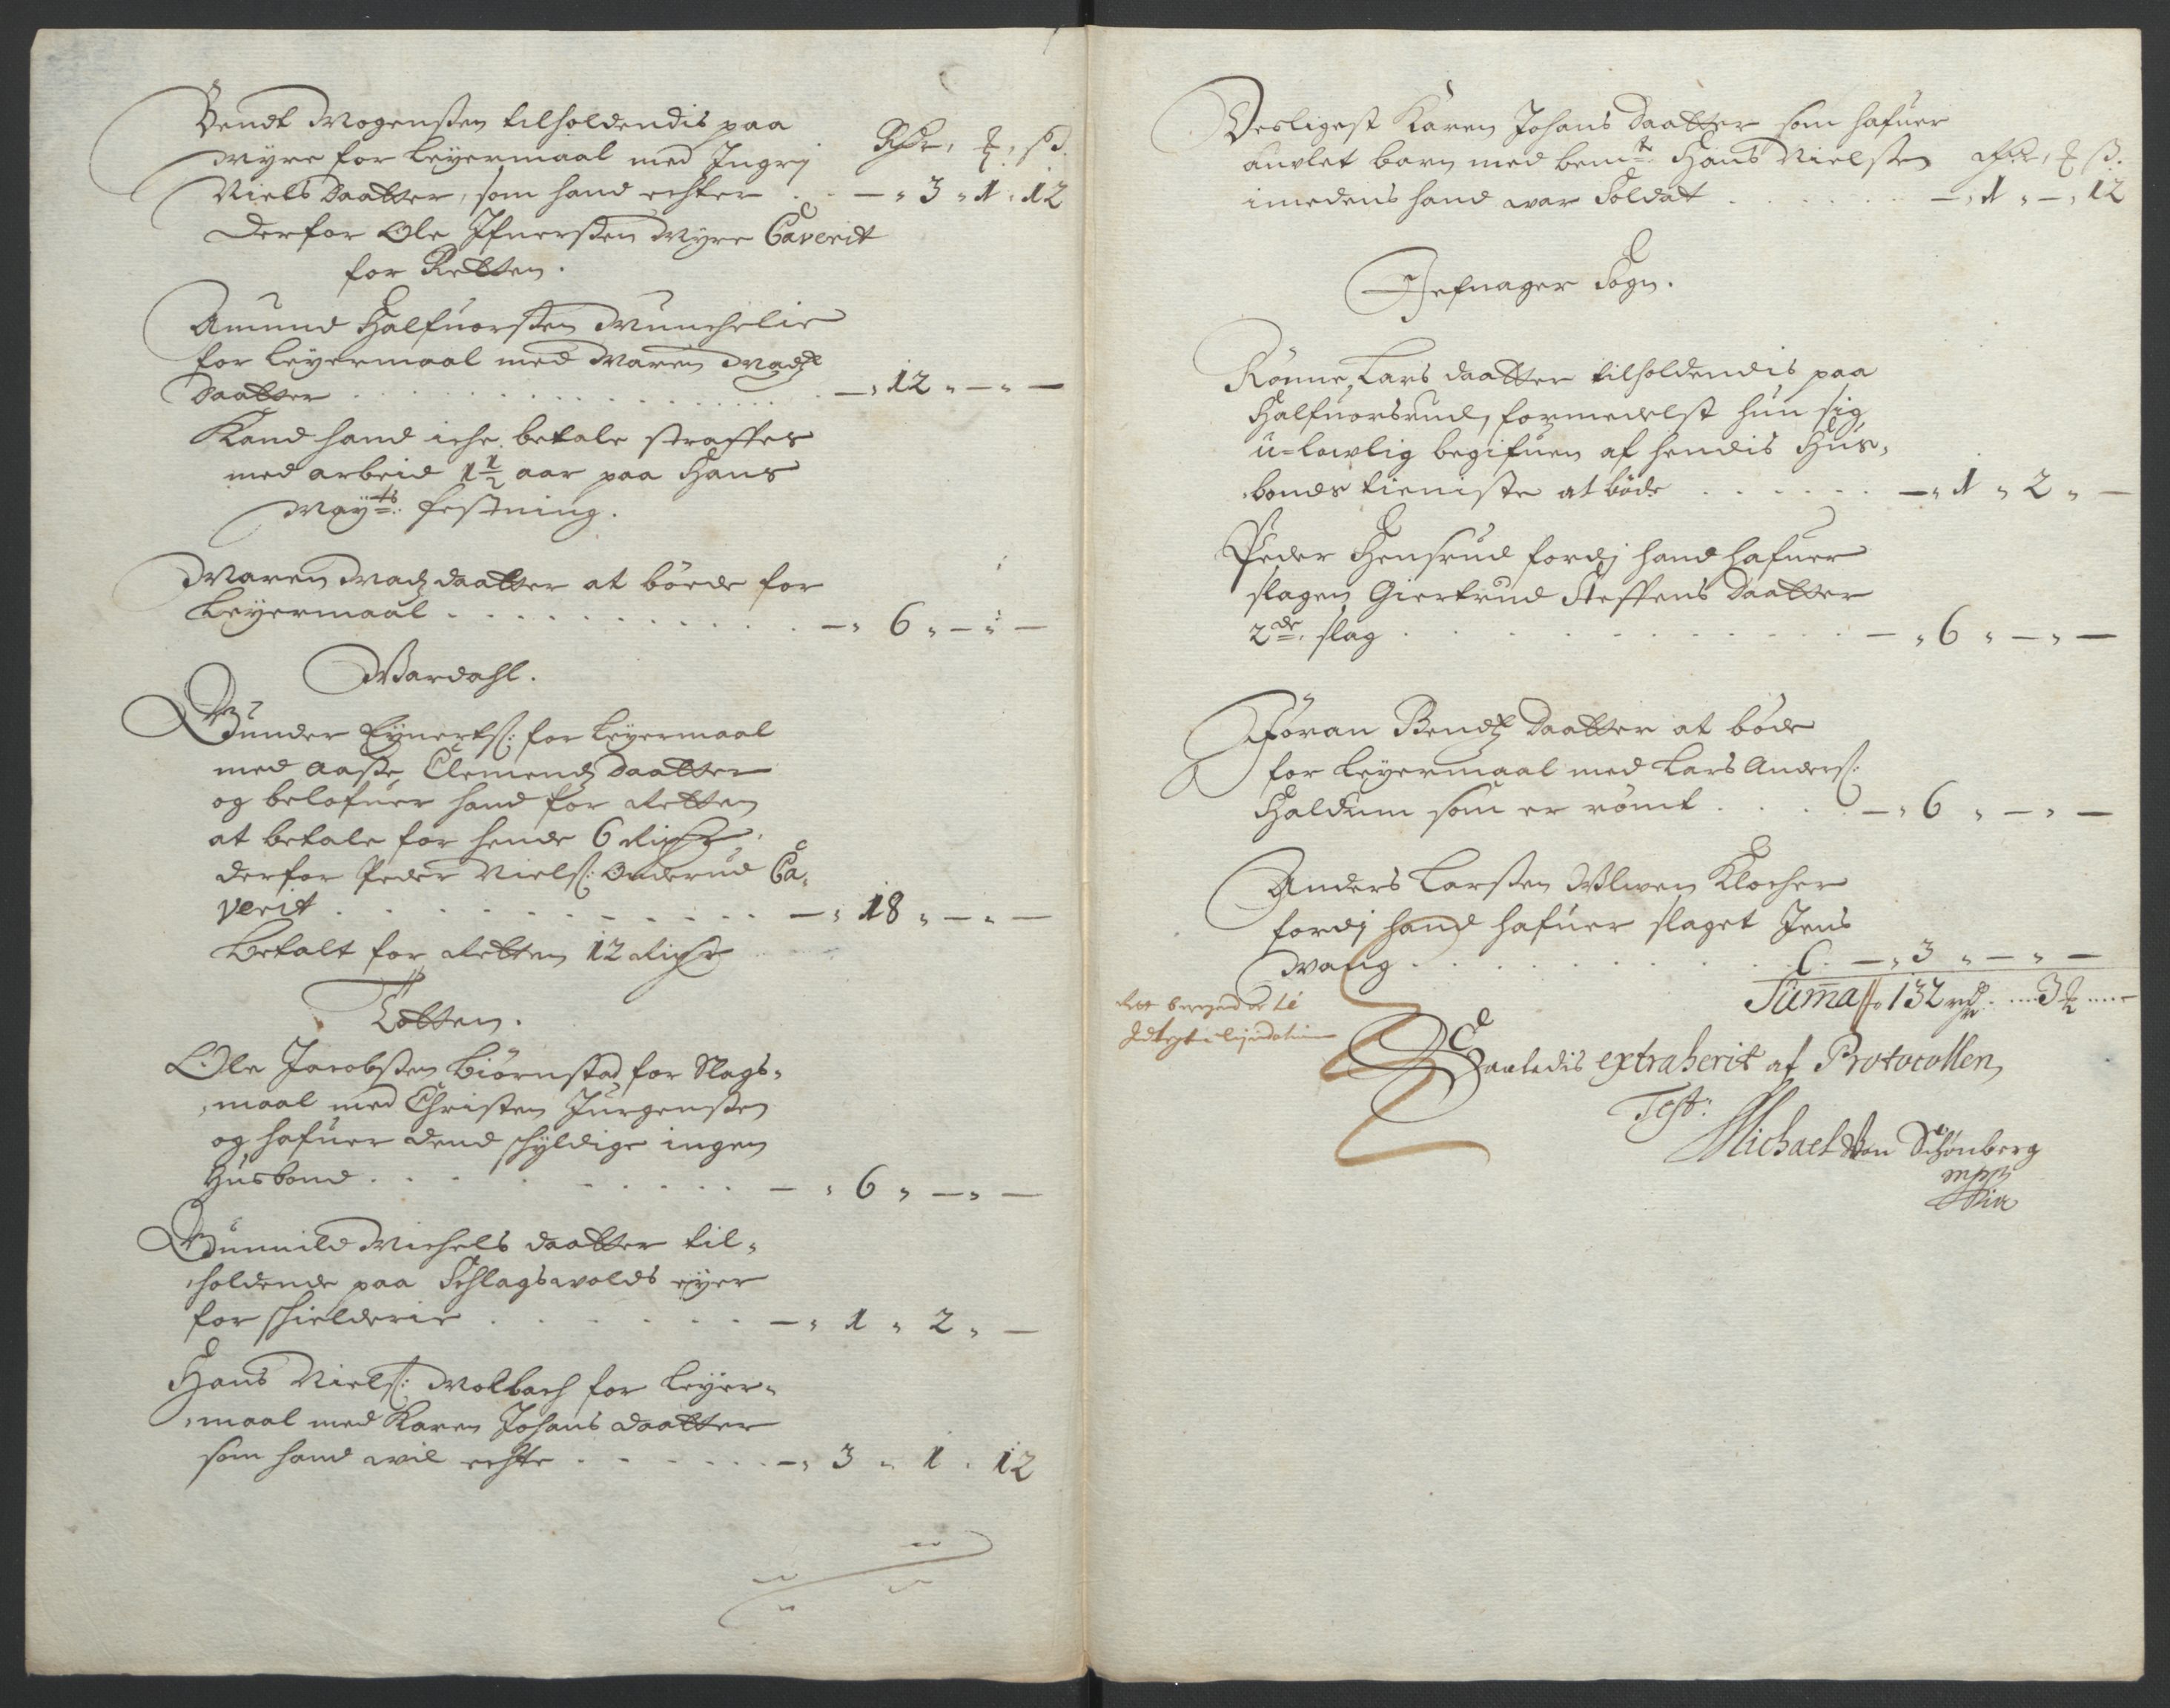 Bendt Mogensßen tilholdendis paa
Myre for Leyermaal med Ingrj
Niels Daatter, som hand echter . . — " 3 " 1 " 12
Derfor Ole Ifuerßen Myre Caverit
for Retten.
Amund Halfuorßen Munchelie
for leyermaal med Maren Madtz
Daatter . . . . . — " 12 " — " —
Kand hand iche betale straffes
med arbeid 1 1/2 aar paa Hans
Mayts: festning.
Maren Madz daatter at böede for
Leyermaal . . . . . — " 6 " — " —
Wardahl.
Gunder Eynertß: for Leyermaal
med Aaße Clemendz Daatter
og belofuer hand for Retten
at betale for hende 6 Rixdr.
derfor Peder Nielß: Onderud Ca-
verit . . . . . — " 18 " — " —
Betalt for Retten 12 Rixdr
Totten.
Ole Jacobßen Biörnstad for Slags-
maal med Christen Jürgenßen
og hafuer dend schyldige ingen
Husbond . . . . . — " 6 " — " —
Gunnild Michels daatter til-
holdende paa Schlagswolds eyer
for schielderie . . . . . — " 1 " 2 " —
Hans Nielß: Molbach for Leyer-
maal med Karen Johans daatter
som hand wil echte . . . . . — " 3 " 1 " 12
Desligest Karen Johans Daatter som hafuer
auvlet barn med bemte Hans Nielßen Rdr, ℥ ß.
imedens hand war Soldat . . . . . — " 1 " — " 12
Jefnager Sogn.
Rönne Lars daatter tilholdendis paa
Halfuorsrud, formedelst hun sig
u-lowlig begifuen af hendis Hus-
bonds tieniste at böde . . . . . — " 1 " 2 " —
Peder Hensrud fordj hand hafuer
slagen Giertrud Steffens Daatter
2de slag . . . . . — " 6 " — " —
Jöran Bendtz Daatter at böde
for leyermaal med Lars Anderß:
Haldum som er römt . . . . — " 6 " — " —
Anders Larßen Ulwen Klocher
fordj hand hafuer slaget Jens
Wang . . . . . — " 3 " — " —
Suma // 132 rdr .... 3 ℥ ....
Saaledis extraherit af Protocollen,
Test:
Michael Von Schönberg
mppria